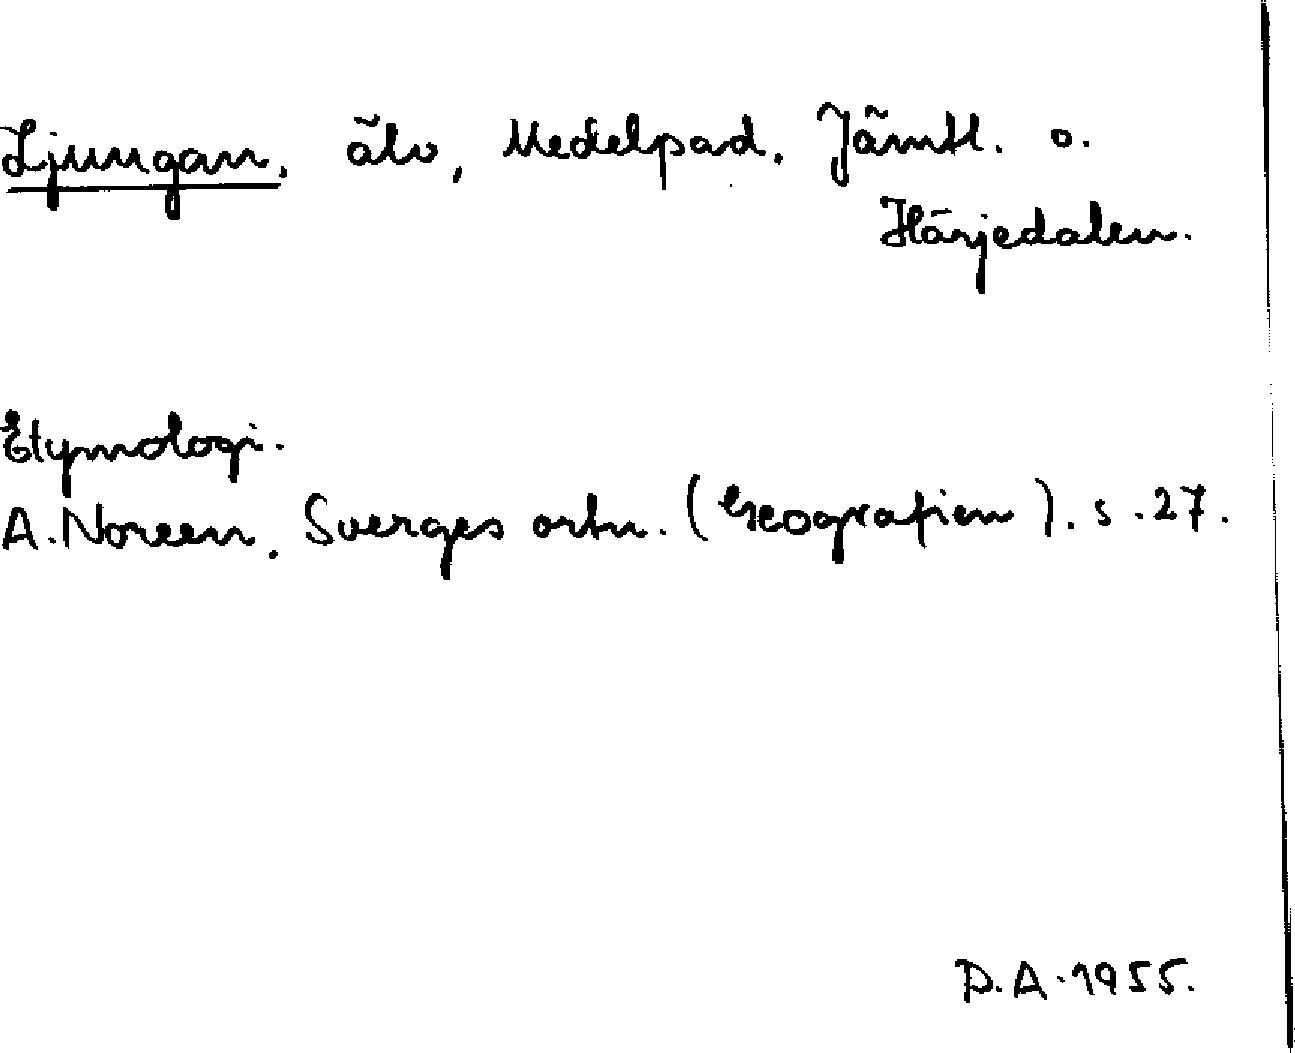 Ljungan, älv, Medelpad, Jämtl. o.
Härjedalen.
Etymologi.
A. Noreen, Sverges ortn. (Geografien). s. 27.
D.A. 1955.